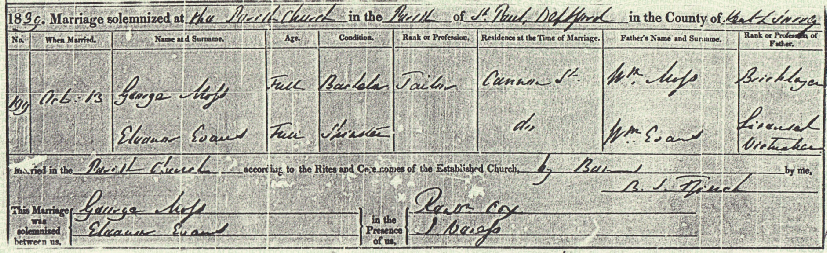 1839. Marriage solemnized at the Parish Church in the Parish of St. Paul, Deptford in the County of Kent & Surrey
No. When Married. Name and Surname. Age. Condition. Rank or Profession. Residence at the Time of Marriage. Father's Name and Surname. Rank or Profession of Father.
199 Oct. 13 George Moss Full Bachelor Tailor Cannon St. Wm Moss Bricklayer
Eleanor Evans Full Spinster do Wm Evans Licensed Victualler
Married in the Parish Church according to the Rites and Ceremonies of the Established Church, by Banns by me,
B. S. Ffinch
This Marriage was solemnized between us, George Moss
Eleanor Evans
in the Presence of us, Cox